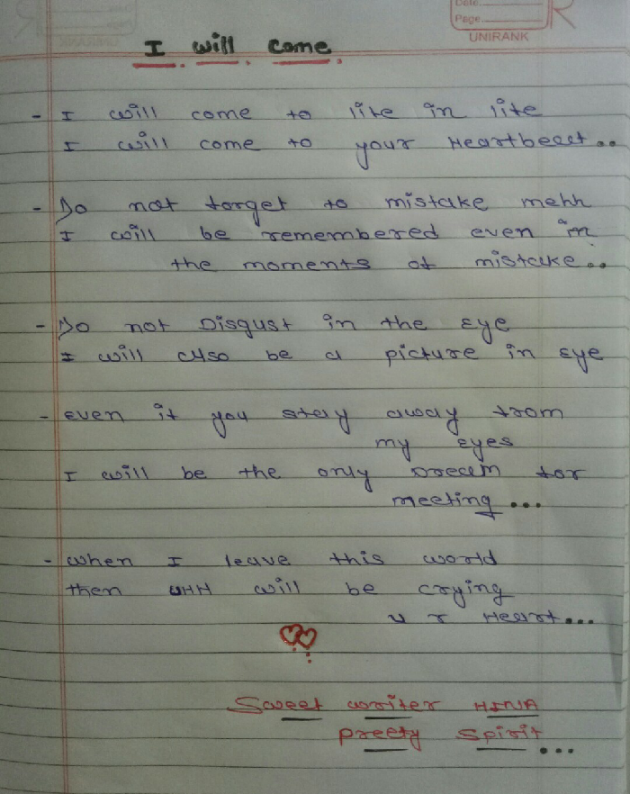 Date
Page
UNIRANK
I will come.
- I will come to life in life
I will come to your Heartbeat..
- Do not forget to mistake mehh
I will be remembered even in
the moments of mistake..
- Do not Disgust in the Eye
I will also be a picture in Eye
- Even if you stay away from
my Eyes
I will be the only Dream for
meeting...
- When I leave this world
then UHH will be crying
u r Heart...
Sweet writer HINA
Preety Spirit...